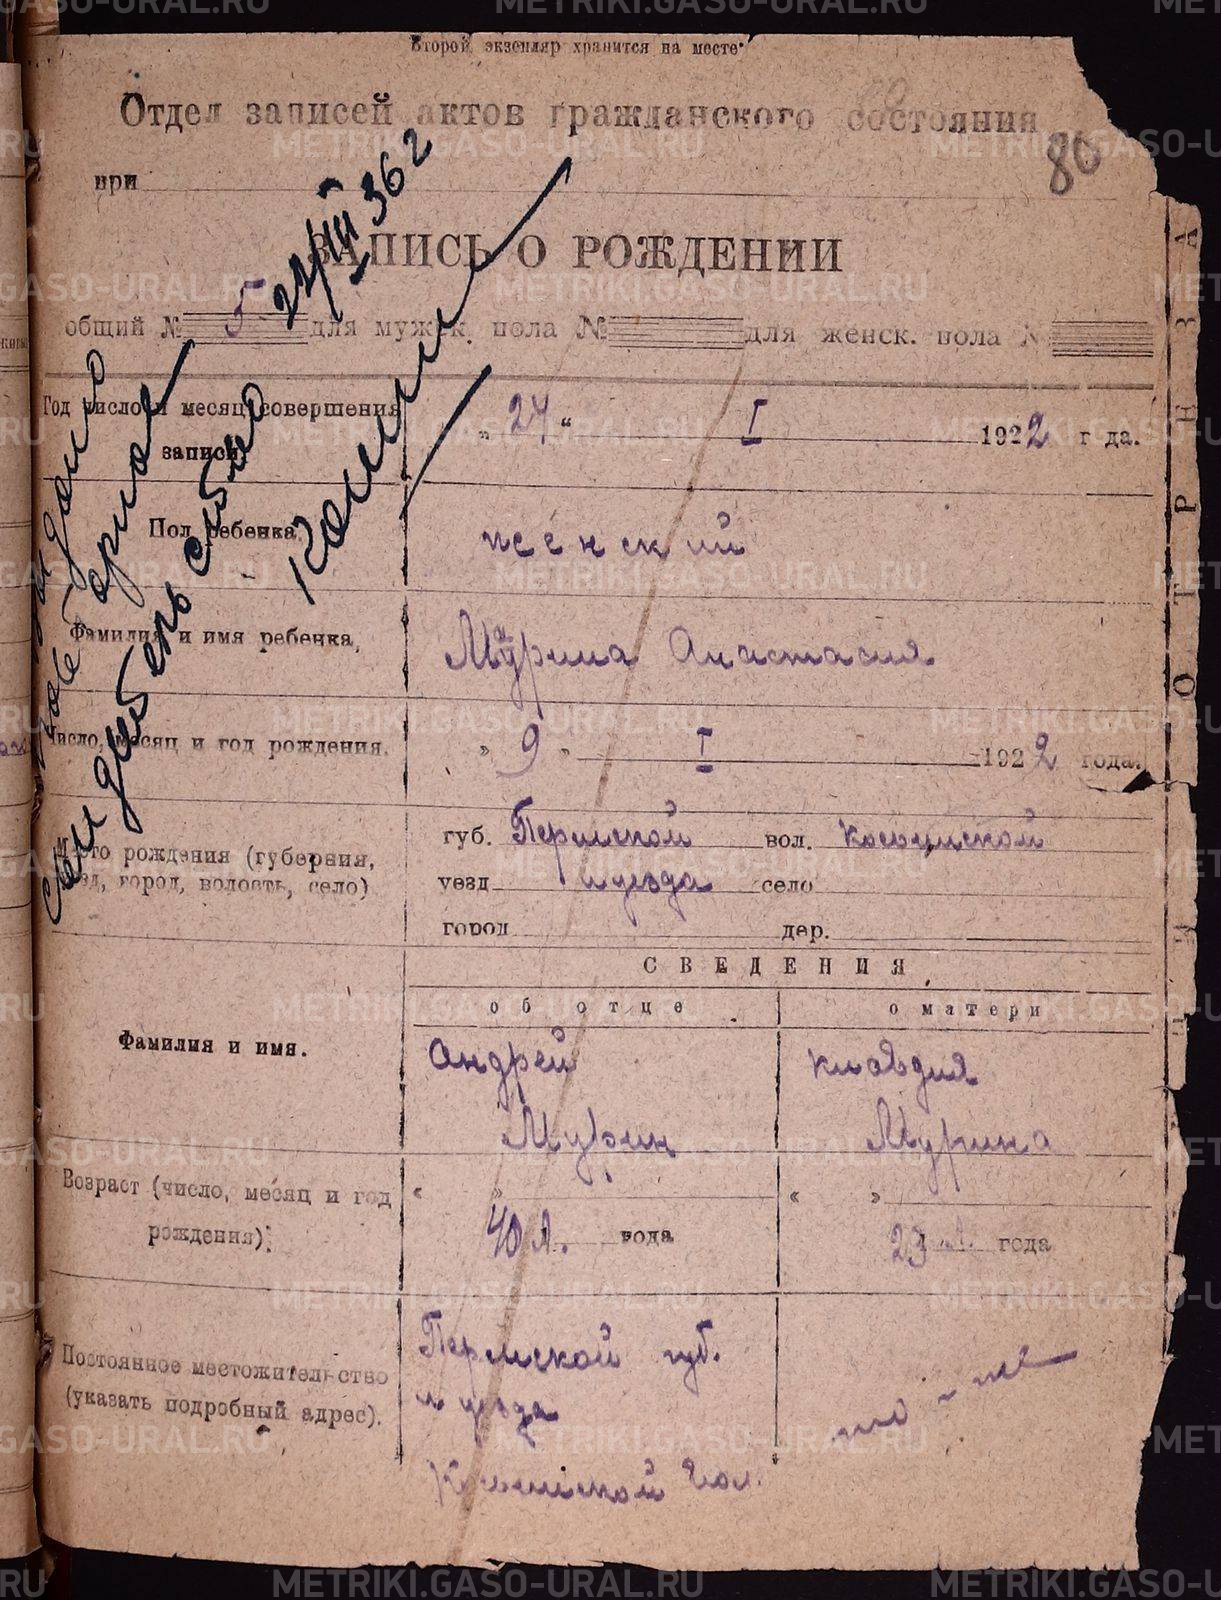 Второй экземпляр хранится на месте.
Отдел записей актов гражданского состояния
80
при
ЗАПИСЬ О РОЖДЕНИИ
общий № 5 для мужск. пола № для женск. пола №
Год число и месяц совершения записи
„ 24 “ I 1922 г да.
Пол ребенка.
женский
Фамилия и имя ребенка,
Мурина Анастасия
Число, месяц и год рождения.
„ 9 „ I 1922 года.
Место рождения (губерния, уезд, город, волость, село)
губ. Пермской вол.
уезд и уезда село
город дер.
СВЕДЕНИЯ
об отце
о матери
Фамилия и имя.
Андрей
Мурин
Клавдия
Мурина
Возраст (число, месяц и год рождения).
« »
40 л. года
« »
23 л. года
Постоянное местожительство (указать подробный адрес).
Пермской губ.
и уезда
вол.
то-же
выдано
свидетель ство
362
ОТРНЗА
METRIKI.GASO-URAL.RU